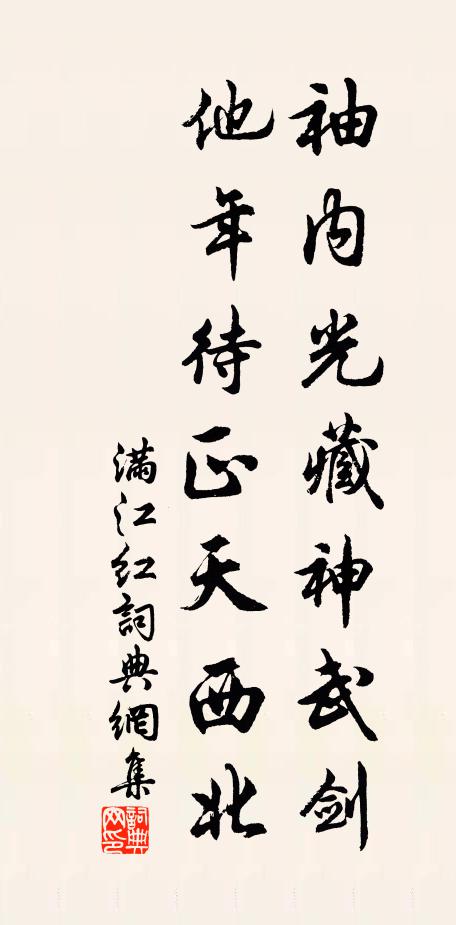 袖内光藏神武剑
他年待正天西北
满江红詞典網集
詞典网印